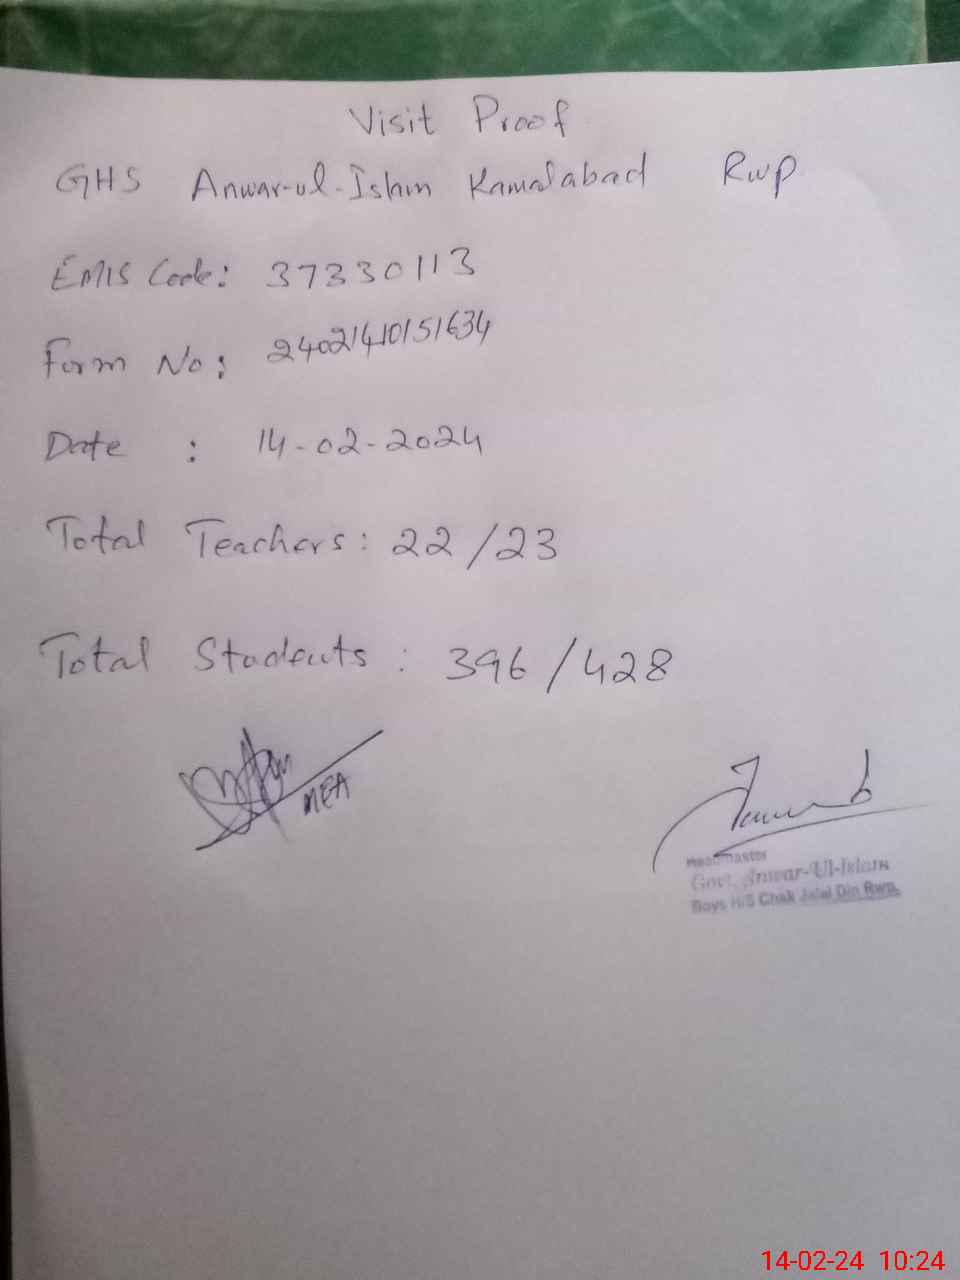 Visit Proof
GHS Anwar-ul-Islam Kamalabad Rwp
EMIS Code: 37330113
Form No: 24021410151634
Date : 14-02-2024
Total Teachers: 22/23
Total Students: 396/428
MEA
Headmaster
Govt. Anwar-Ul-Islam
Boys H/S Chak Jalal Din Rwp.
14-02-24 10:24